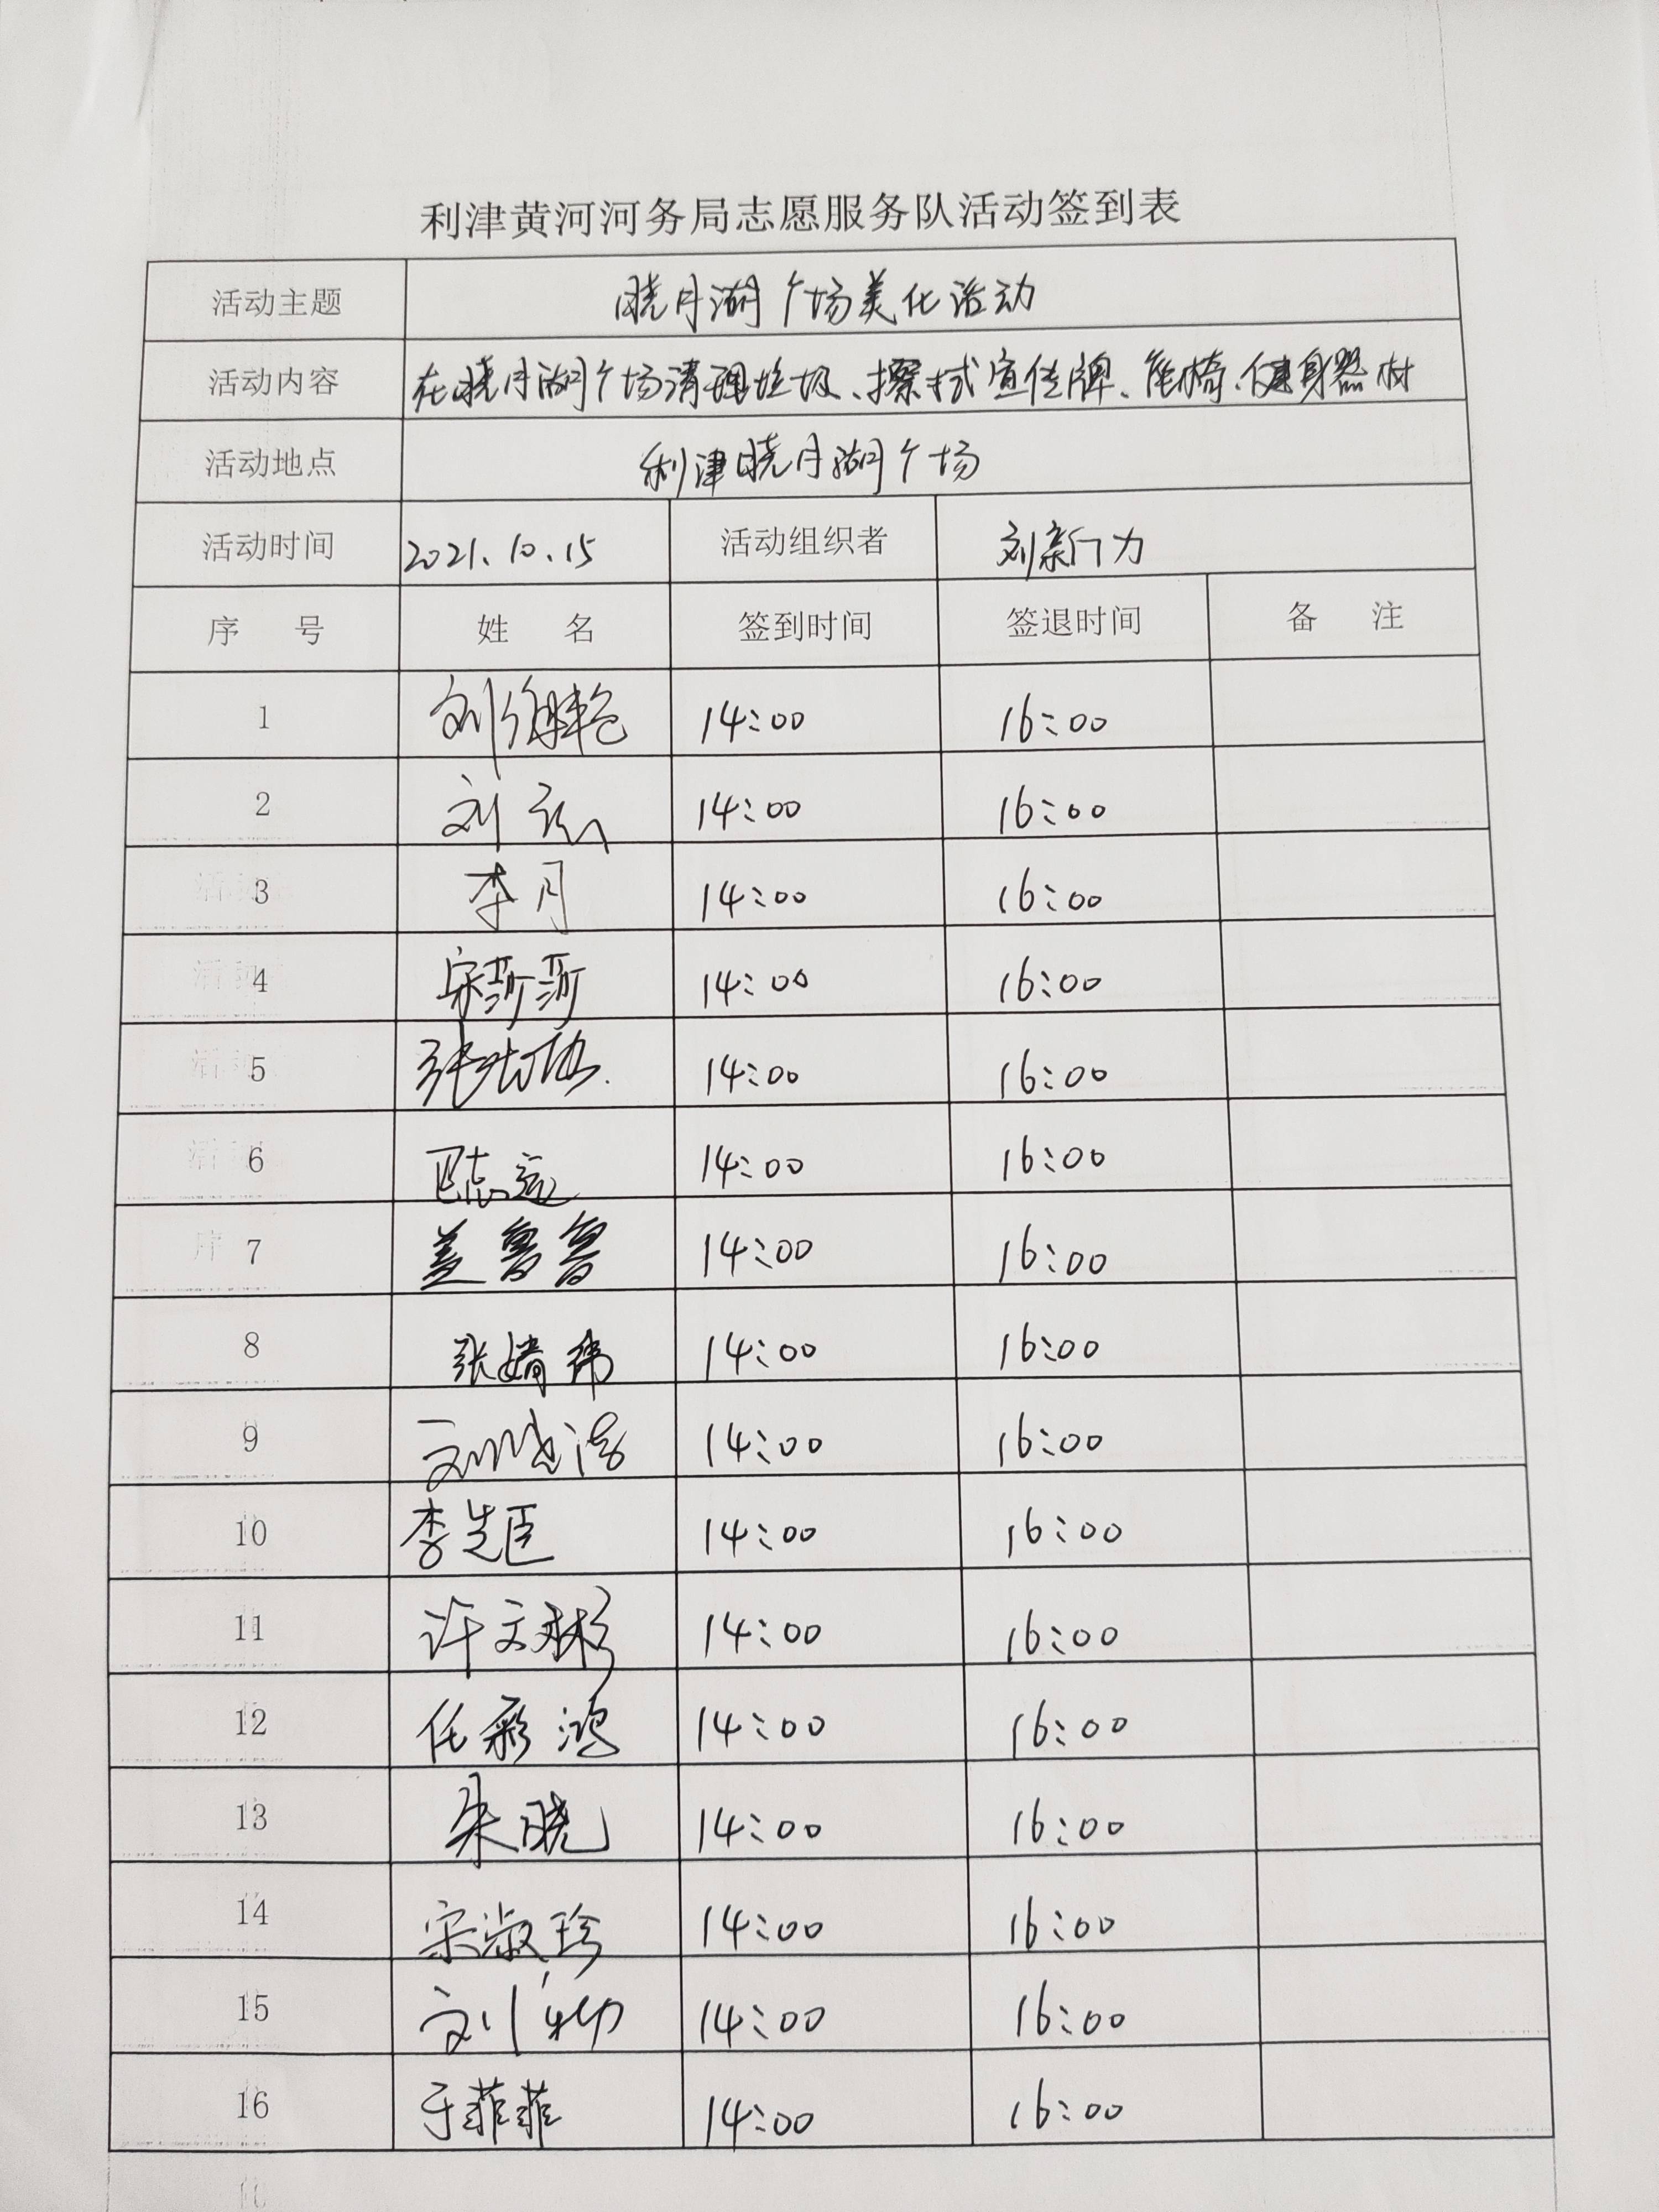 利津黄河河务局志愿服务队活动签到表
活动主题 晓月湖广场美化活动
活动内容 在晓月湖广场清理垃圾、擦拭宣传牌、座椅、健身器材
活动地点 利津晓月湖广场
活动时间 2021.10.15 活动组织者 刘新力
序 号 姓 名 签到时间 签退时间 备 注
1 刘维艳 14:00 16:00
2 刘 14:00 16:00
3 李月 14:00 16:00
4 宋菏菏 14:00 16:00
5 张 14:00 16:00
6 志远 14:00 16:00
7 盖鲁鲁 14:00 16:00
8 张婧祎 14:00 16:00
9 刘 14:00 16:00
10 李先臣 14:00 16:00
11 许文彬 14:00 16:00
12 任彩鸿 14:00 16:00
13 朱晓 14:00 16:00
14 宋淑珍 14:00 16:00
15 刘 14:00 16:00
16 于菲菲 14:00 16:00